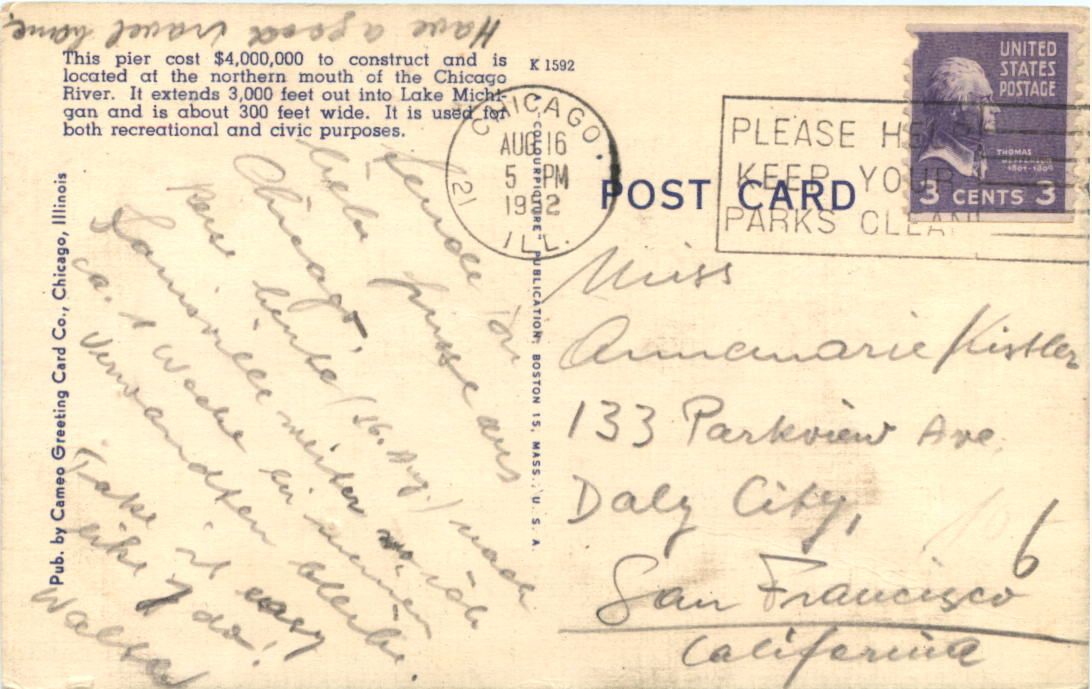 Have a good travel home.
This pier cost $4,000,000 to construct and is
located at the northern mouth of the Chicago
River. It extends 3,000 feet out into Lake Michi-
gan and is about 300 feet wide. It is used for
both recreational and civic purposes.
K 1592
CHICAGO.
AUG 16
5 PM
1952
ILL.
21
PLEASE HELP
KEEP YOUR
PARKS CLEAN
UNITED
STATES
POSTAGE
THOMAS
JEFFERSON
1801-1809
3 CENTS 3
POST CARD
Pub. by Cameo Greeting Card Co., Chicago, Illinois
"COLOURPICTURE" PUBLICATION, BOSTON 15, MASS., U. S. A.
Sende Dir
liebe Grüsse aus
Chicago.
Reise heute (16. Aug.) nach
Louisville weiter wo ich
ca. 1 Woche bei meinen
Verwandten bleibe.
Take it easy
like I do!
Walter
Miss
Annemarie Kistler
133 Parkview Ave.
Daly City,
San Francisco
6
California